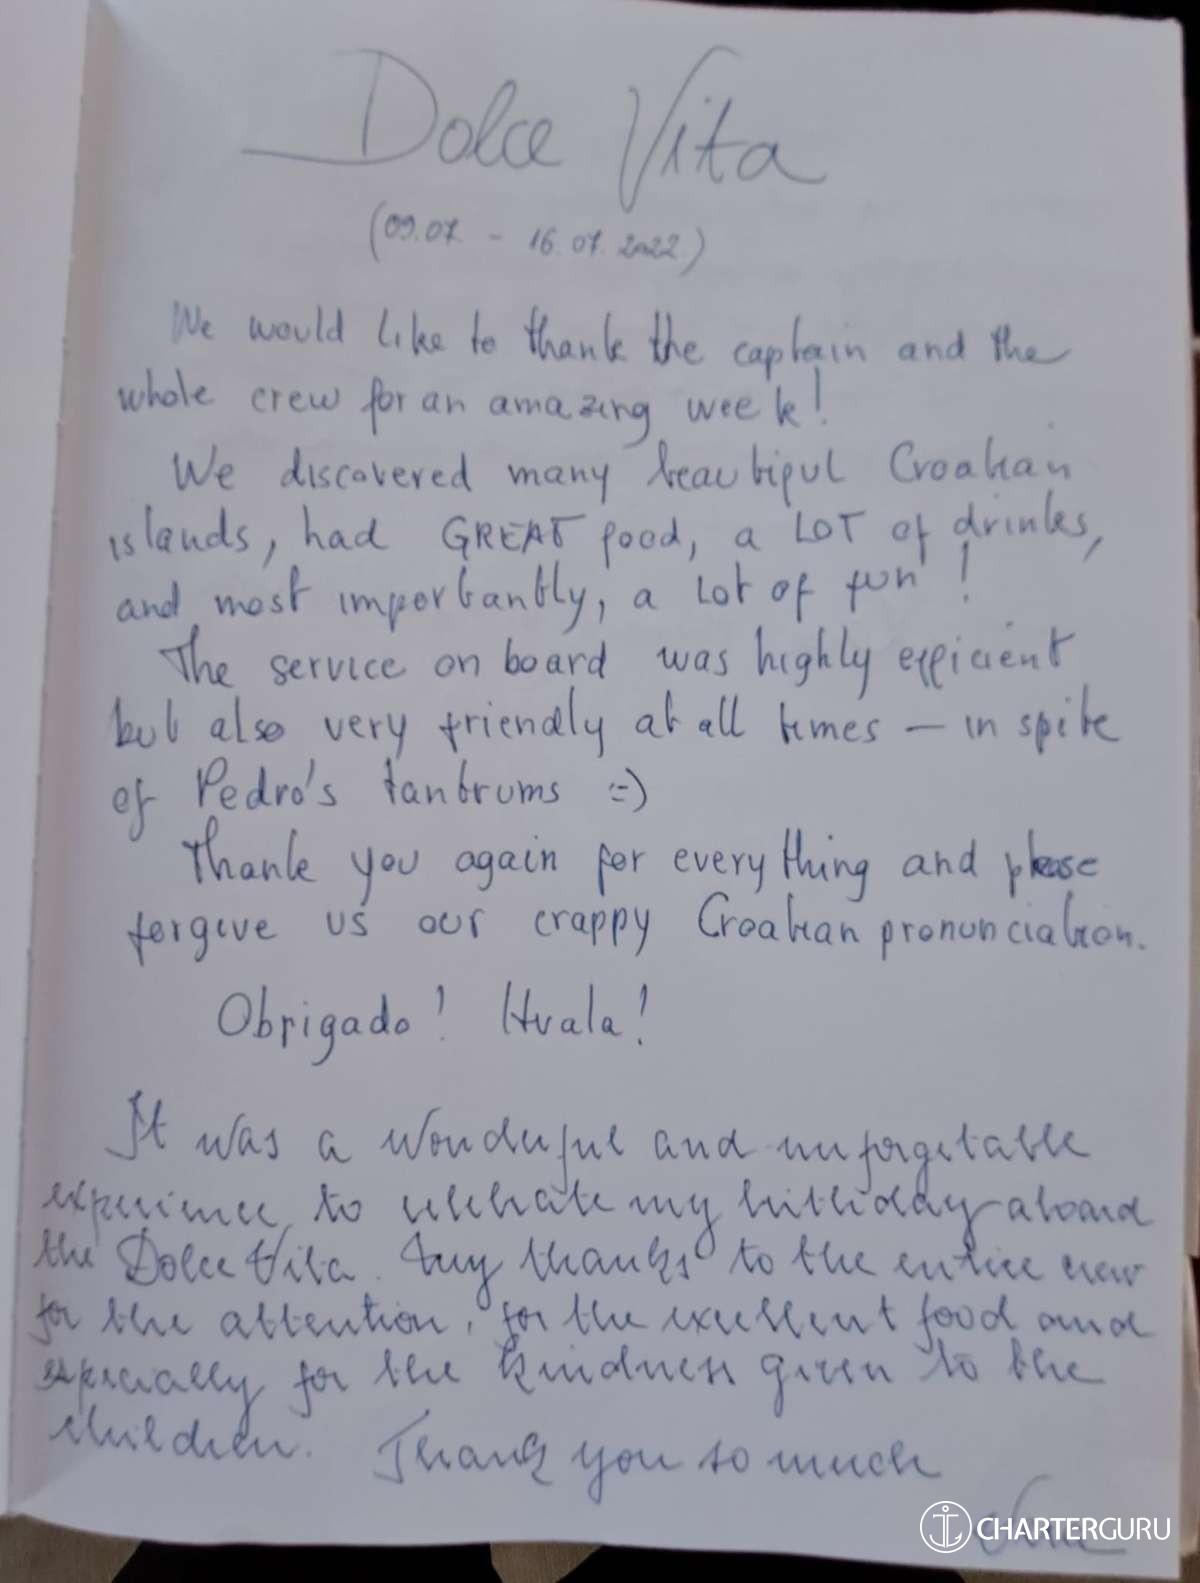 Dolce Vita
(09.07 - 16.07.2022)
We would like to thank the captain and the
whole crew for an amazing week!
We discovered many beautiful Croatian
islands, had GREAT food, a LOT of drinks,
and most importantly, a lot of fun!
The service on board was highly efficient
but also very friendly at all times - in spite
of Pedro's tantrums :=)
Thank you again for everything and please
forgive us our crappy Croatian pronunciation.
Obrigado! Hvala!
It was a wonderful and unforgetable
experience to celebrate my birthday aboard
the Dolce Vita. Any thanks to the entire crew
for the attention, for the excellent food and
especially for the kindness given to the
children. Thank you so much
CHARTERGURU